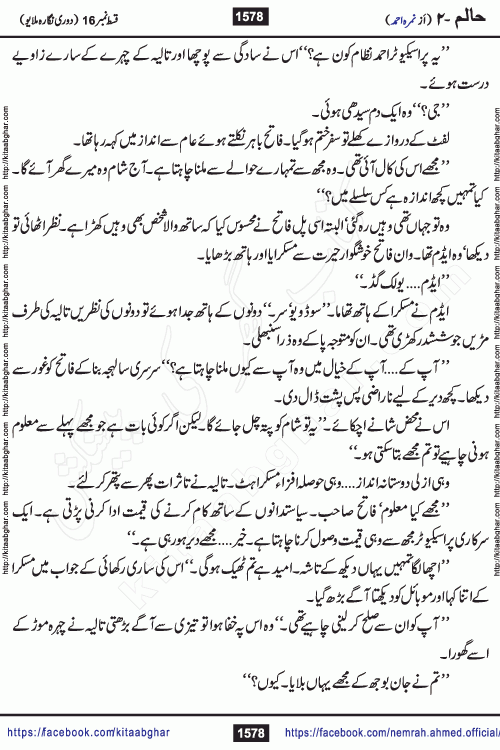 حالم -۲ (از نمرہ احمد)
1578
قسط نمبر 16 (دوری لنگارہ ملایو)
’’یہ پراسیکیوٹر احمد نظام کون ہے؟‘‘ اس نے سادگی سے پوچھا اور تالیہ کے چہرے کے سارے زاویے
درست ہوئے۔
’’جی؟‘‘ وہ ایک دم سیدھی ہوئی۔
لفٹ کے دروازے کھلے تو سفر ختم ہوگیا۔ فاتح باہر نکلتے ہوئے عام سے انداز میں کہہ رہا تھا۔
’’مجھے اس کی کال آئی تھی۔ وہ مجھ سے تمہارے حوالے سے ملنا چاہتا ہے۔ آج شام وہ میرے گھر آئے گا۔
کیا تمہیں کچھ اندازہ ہے کس سلسلے میں؟‘‘
وہ تو جہاں تھی وہیں رہ گئی‘ البتہ اسی پل فاتح نے محسوس کیا کہ ساتھ والا شخص بھی وہیں کھڑا ہے۔ نظر اٹھائی تو
دیکھا‘ وہ ایڈم تھا۔ وان فاتح خوشگوار حیرت سے مسکرایا اور ہاتھ بڑھایا۔
’’ایڈم .... یو لک گڈ۔‘‘
ایڈم نے مسکرا کے ہاتھ تھاما۔ ’’سو ڈو یو‘ سر۔‘‘ دونوں کے ہاتھ جدا ہوئے تو دونوں کی نظریں تالیہ کی طرف
مڑیں جو ششدر کھڑی تھی۔ ان کو متوجہ پا کے وہ ذرا سنبھلی۔
’’آپ کے .... آپ کے خیال میں وہ آپ سے کیوں ملنا چاہتا ہے؟‘‘ سرسری سا لہجہ بنا کے فاتح کو غور سے
دیکھا۔ کچھ دیر کے لیے ناراضی پس پشت ڈال دی۔
اس نے محض شانے اچکائے۔ ’’یہ تو شام کو پتہ چل جائے گا۔ لیکن اگر کوئی بات ہے جو مجھے پہلے سے معلوم
ہونی چاہیے تو تم مجھے بتا سکتی ہو۔‘‘
وہی ازلی دوستانہ انداز .... وہی حوصلہ افزاء مسکراہٹ۔ تالیہ نے تاثرات پھر سے پتھر کر لئے۔
’’مجھے کیا معلوم‘ فاتح صاحب۔ سیاستدانوں کے ساتھ کام کرنے کی قیمت ادا کرنی پڑتی ہے۔ ایک
سرکاری پراسیکیوٹر مجھ سے وہی قیمت وصول کرنا چاہتا ہے۔ خیر .... مجھے دیر ہو رہی ہے۔‘‘
’’اچھا لگا تمہیں یہاں دیکھ کے تاشہ۔ امید ہے تم ٹھیک ہوگی۔‘‘ اس کی ساری رکھائی کے جواب میں مسکرا
کے اتنا کہا اور موبائل کو دیکھتا آگے بڑھ گیا۔
’’آپ کو ان سے صلح کر لینی چاہیے تھی۔‘‘ وہ اس پہ خفا ہوا تو تیزی سے آگے بڑھتی تالیہ نے چہرہ موڑ کے
اسے گھورا۔
’’تم نے جان بوجھ کے مجھے یہاں بلایا۔ کیوں؟‘‘
http://kitaabghar.com
https://facebook.com/kitaabghar
1578
https://facebook.com/nemrah.ahmed.official/